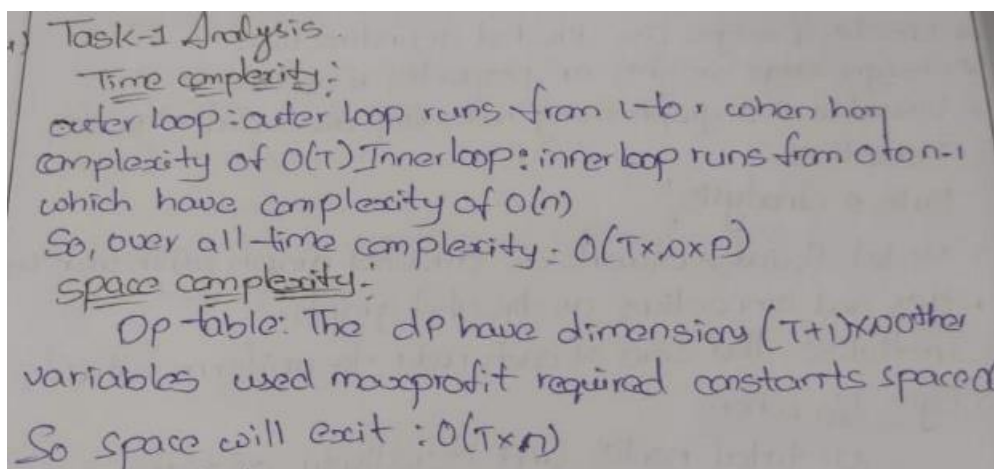 Task-1 Analysis.
Time complexity:
outer loop: outer loop runs from 1 to r when hon
complexity of O(T) Inner loop: inner loop runs from 0 to n-1
which have complexity of O(n)
So, over all time complexity: O(T×n×P)
Space complexity:-
Dp table: The dp have dimensions (T+1)×n other
variables used maxprofit required constants space
So space will exit : O(T×n)